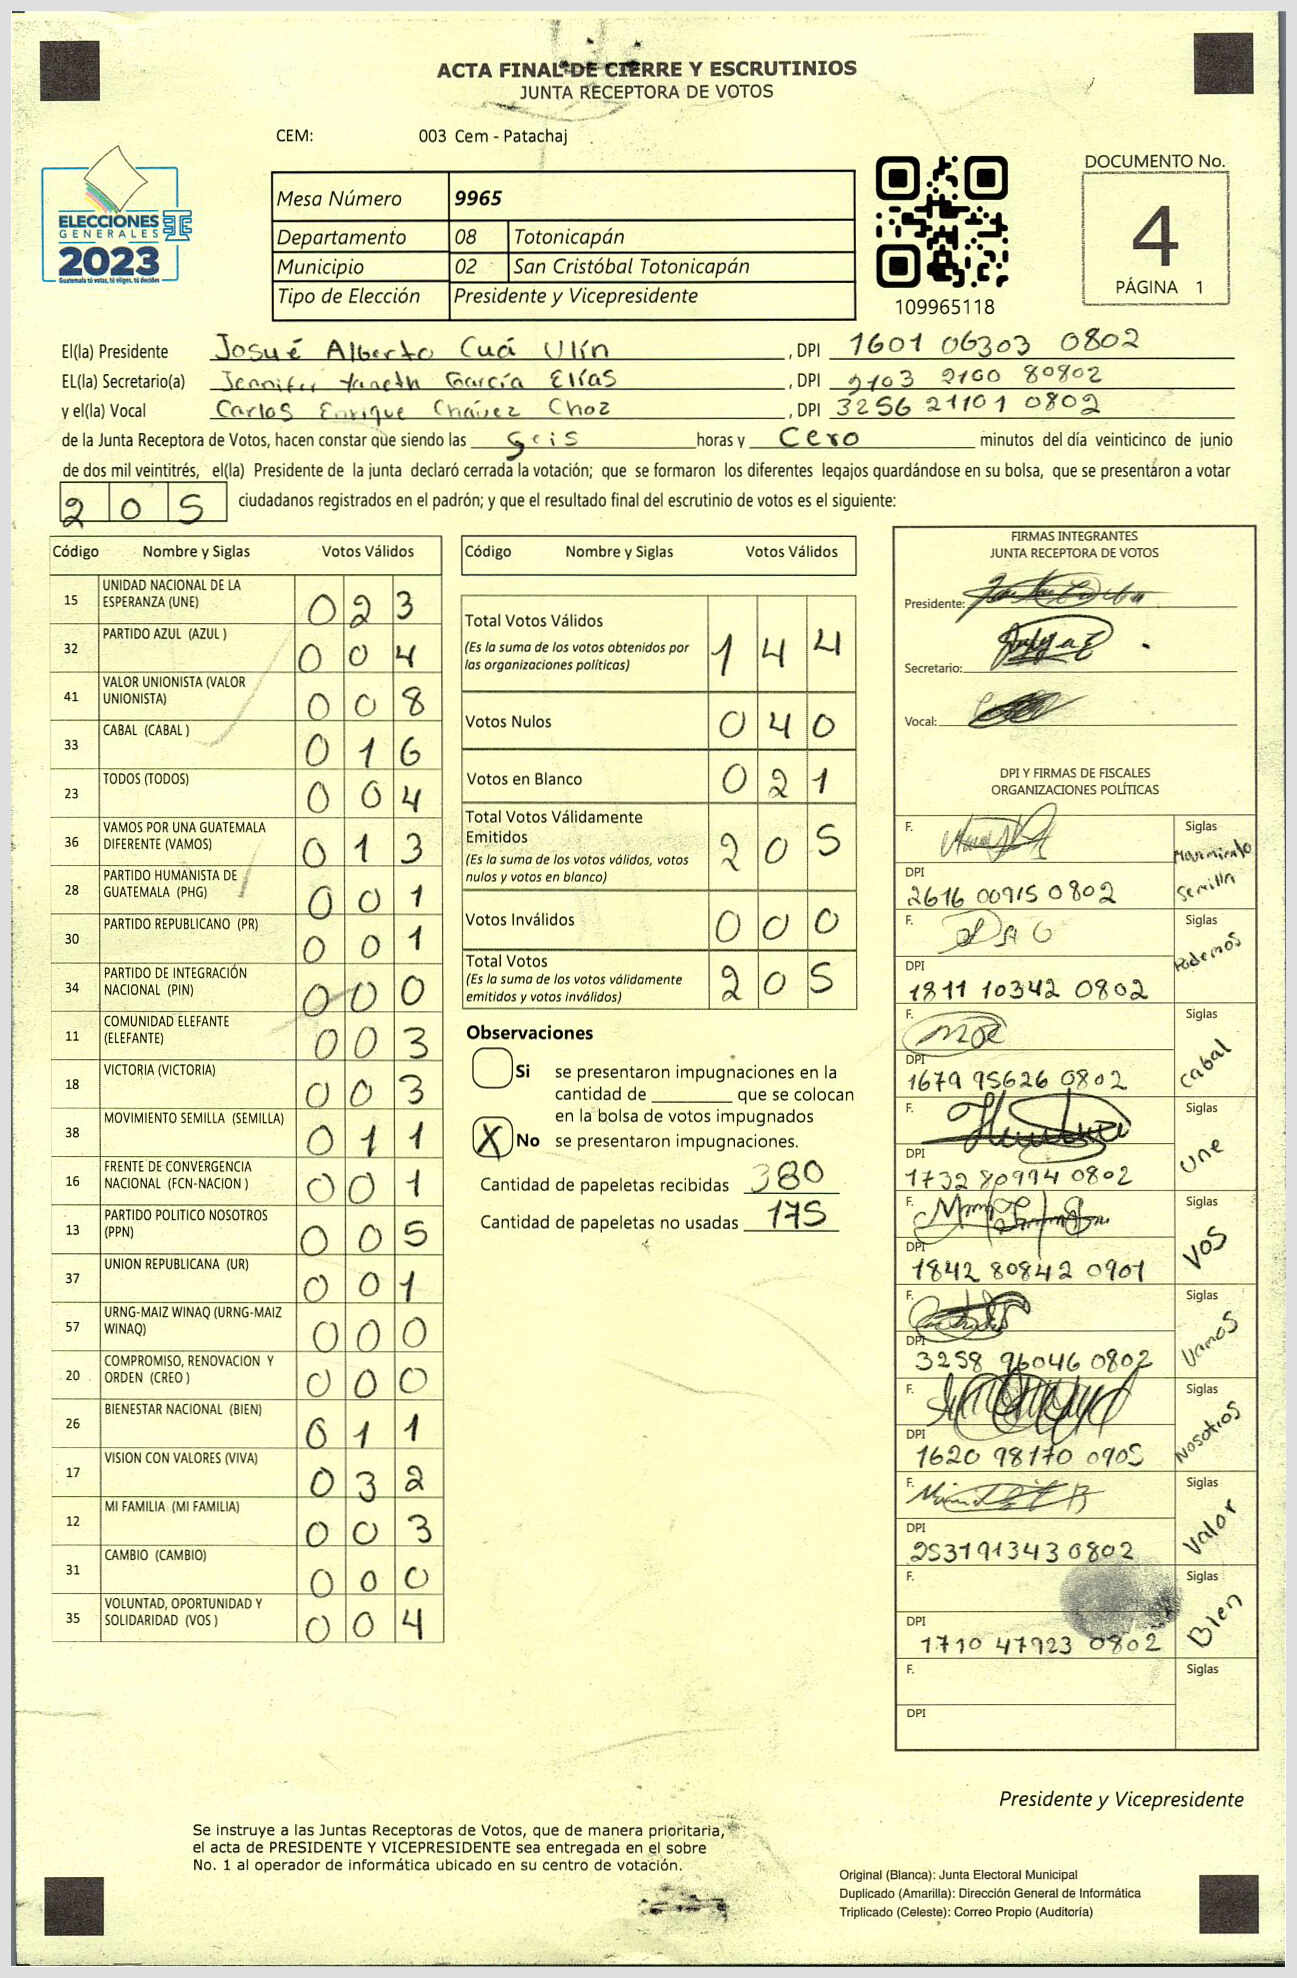 ACTA FINAL DE CIERRE Y ESCRUTINIOS
JUNTA RECEPTORA DE VOTOS
CEM: 003 Cem - Patachaj
ELECCIONES
GENERALES
2023
Guatemala tú votas, tú eliges, tú decides
Mesa Número 9965
Departamento 08 Totonicapán
Municipio 02 San Cristóbal Totonicapán
Tipo de Elección Presidente y Vicepresidente
109965118
DOCUMENTO No.
4
PÁGINA 1
El(la) Presidente Josué Alberto Cuá Ulín , DPI 1601 06303 0802
EL(la) Secretario(a) Jennifer Yaneth García Elías , DPI 2103 2100 80802
y el(la) Vocal Carlos Enrique Chávez Choz , DPI 3256 21101 0802
de la Junta Receptora de Votos, hacen constar que siendo las Seis horas y Cero minutos del día veinticinco de junio
de dos mil veintitrés, el(la) Presidente de la junta declaró cerrada la votación; que se formaron los diferentes legajos guardándose en su bolsa, que se presentáron a votar
205 ciudadanos registrados en el padrón; y que el resultado final del escrutinio de votos es el siguiente:
Código Nombre y Siglas Votos Válidos
15 UNIDAD NACIONAL DE LA ESPERANZA (UNE) 023
32 PARTIDO AZUL (AZUL ) 004
41 VALOR UNIONISTA (VALOR UNIONISTA) 008
33 CABAL (CABAL ) 016
23 TODOS (TODOS) 004
36 VAMOS POR UNA GUATEMALA DIFERENTE (VAMOS) 013
28 PARTIDO HUMANISTA DE GUATEMALA (PHG) 001
30 PARTIDO REPUBLICANO (PR) 001
34 PARTIDO DE INTEGRACIÓN NACIONAL (PIN) 000
11 COMUNIDAD ELEFANTE (ELEFANTE) 003
18 VICTORIA (VICTORIA) 003
38 MOVIMIENTO SEMILLA (SEMILLA) 011
16 FRENTE DE CONVERGENCIA NACIONAL (FCN-NACION ) 001
13 PARTIDO POLITICO NOSOTROS (PPN) 005
37 UNION REPUBLICANA (UR) 001
57 URNG-MAIZ WINAQ (URNG-MAIZ WINAQ) 000
20 COMPROMISO, RENOVACION Y ORDEN (CREO ) 000
26 BIENESTAR NACIONAL (BIEN) 011
17 VISION CON VALORES (VIVA) 032
12 MI FAMILIA (MI FAMILIA) 003
31 CAMBIO (CAMBIO) 000
35 VOLUNTAD, OPORTUNIDAD Y SOLIDARIDAD (VOS ) 004
Código Nombre y Siglas Votos Válidos
Total Votos Válidos 144
(Es la suma de los votos obtenidos por
las organizaciones políticas)
Votos Nulos 040
Votos en Blanco 021
Total Votos Válidamente
Emitidos 205
(Es la suma de los votos válidos, votos
nulos y votos en blanco)
Votos Inválidos 000
Total Votos 205
(Es la suma de los votos válidamente
emitidos y votos inválidos)
Observaciones
Si se presentaron impugnaciones en la
cantidad de ________ que se colocan
en la bolsa de votos impugnados
X No se presentaron impugnaciones.
Cantidad de papeletas recibidas 380
Cantidad de papeletas no usadas 175
FIRMAS INTEGRANTES
JUNTA RECEPTORA DE VOTOS
Presidente:
Secretario:
Vocal:
DPI Y FIRMAS DE FISCALES
ORGANIZACIONES POLÍTICAS
F. Siglas Movimiento Semilla
DPI 2616 00915 0802
F. Siglas Podemos
DPI 1811 10342 0802
F. Siglas Cabal
DPI 1679 95626 0802
F. Siglas Une
DPI 1732 80994 0802
F. Siglas VOS
DPI 1842 80842 0901
F. Siglas Vamos
DPI 3258 96046 0802
F. Siglas Nosotros
DPI 1620 98170 0905
F. Siglas Valor
DPI 253191343 0802
F. Siglas Bien
DPI 1710 47923 0802
F. Siglas
DPI
Presidente y Vicepresidente
Se instruye a las Juntas Receptoras de Votos, que de manera prioritaria,
el acta de PRESIDENTE Y VICEPRESIDENTE sea entregada en el sobre
No. 1 al operador de informática ubicado en su centro de votación.
Original (Blanca): Junta Electoral Municipal
Duplicado (Amarilla): Dirección General de Informática
Triplicado (Celeste): Correo Propio (Auditoría)